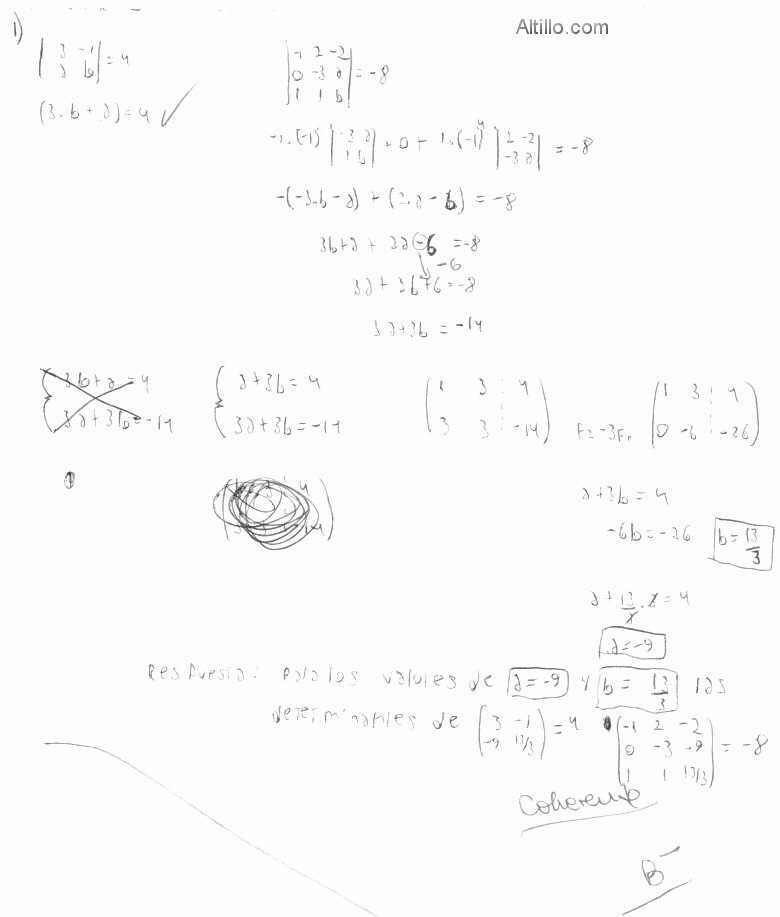 Altillo.com
1)
| 3 -1 | = 4
| a b |
(3.b + a) = 4 ✓
| -1 2 -2 |
| 0 -3 a | = -8
| 1 1 b |
-1.(-1) | -3 a | + 0 + 1.(-1)⁴ | 2 -2 | = -8
| 1 b | | -3 a |
-(-3.b - a) + (2.a - 6) = -8
3b + a + 2a - 6 = -8
-6
3a + 3b + 6 = -8
3a + 3b = -14
{ 3b + a = 4
{ 3a + 3b = -14
{ a + 3b = 4
{ 3a + 3b = -14
( 1 3 : 4 )
( 3 3 : -14 )
F2 - 3F1
( 1 3 : 4 )
( 0 -6 : -26 )
a + 3b = 4
-6b = -26 b = 13/3
a + 13/3 . 3 = 4
a = -9
Respuesta: Para los valores de a = -9 y b = 13/3 las
determinantes de ( 3 -1 ) = 4 ( -1 2 -2 )
( -9 13/3 ) ( 0 -3 -9 ) = -8
( 1 1 13/3 )
Coherente
B-